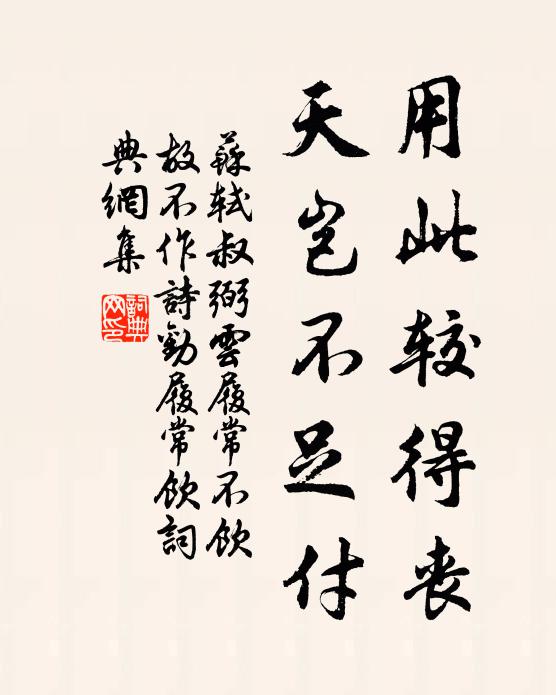 用此较得丧
天岂不足付
蘇軾叔弼雲履常不飲
故不作詩勸履常飲詞
典網集
詞典
网印